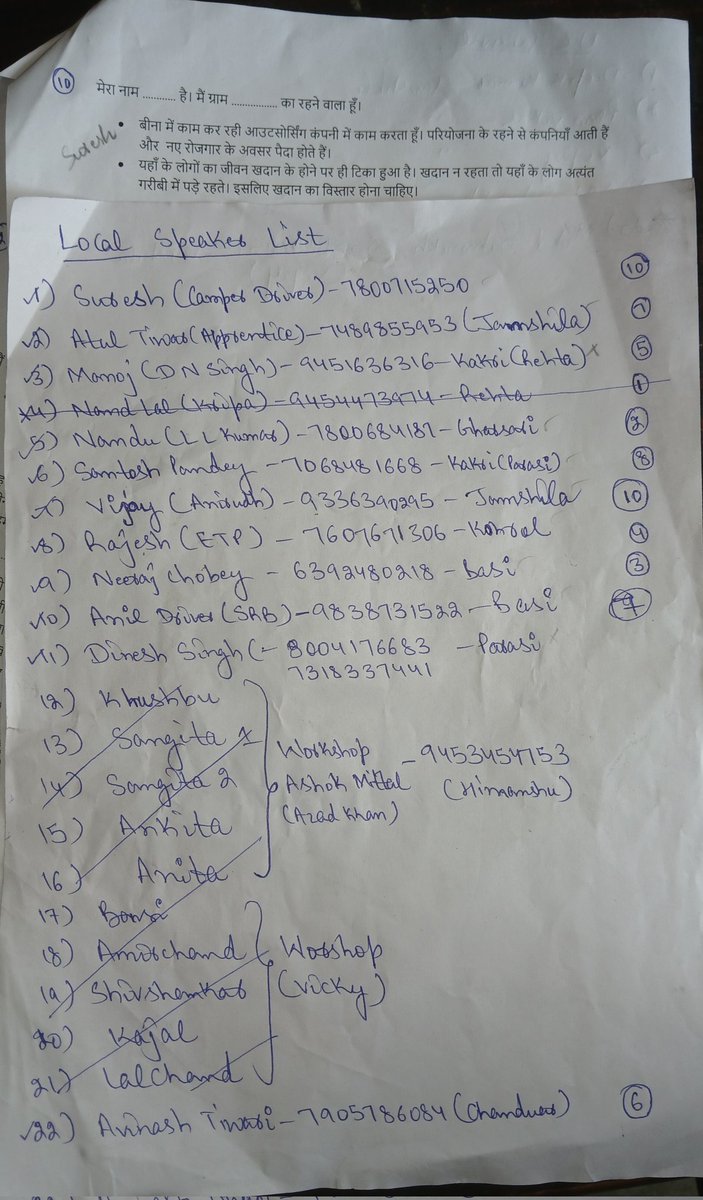 10
मेरा नाम ........... है। मैं ग्राम ................ का रहने वाला हूँ।
Suresh
• बीना में काम कर रही आउटसोर्सिंग कंपनी में काम करता हूँ। परियोजना के रहने से कंपनियाँ आती हैं
और नए रोजगार के अवसर पैदा होते हैं।
• यहाँ के लोगों का जीवन खदान के होने पर ही टिका हुआ है। खदान न रहता तो यहाँ के लोग अत्यंत
गरीबी में पड़े रहते। इसलिए खदान का विस्तार होना चाहिए।
Local Speaker List
1) Suresh (Camper Driver) - 7800715250 10
2) Atul Tiwari (Apprentice) - 7489855953 (Jamshila)
3) Manoj (D N Singh) - 9451636316 - Kakri (Rehta) 5
4) Nand Lal (Kripa) - 9454473974 - Rehta 1
5) Nandu (L L Kumar) - 7800684187 - Gharsari 2
6) Santosh Pandey - 7068481668 - Kakri (Parasi) 8
7) Vijay (Anirudh) - 9336390295 - Jamshila 10
8) Rajesh (ETP) - 7607671306 - 4
9) Neeraj Chobey - 6392480218 - Basi 3
10) Anil Driver (SRB) - 9838731522 - Basi
11) Dinesh Singh (- 8004176683 - Parasi
7318337441
12) Khushbu
13) Sangita 1
14) Sangita 2
15) Ankita
16) Anita
Workshop - 9453454753
Ashok Mittal (Himanshu)
(Azad Khan)
17) Bansi
18) Amirchand
19) Shivshankar
20) Kajal
21) Lalchand
Worshop
(Vicky)
22) Avinash Tiwari - 7905786084 (Chanduar) 6